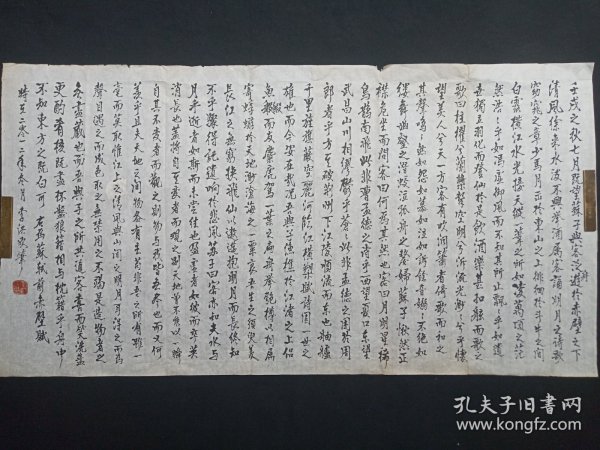 壬戌之秋七月既望蘇子與客泛舟遊於赤壁之下
清風徐來水波不興舉酒屬客誦明月之詩歌
窈窕之章少焉月出於東山之上徘徊於斗牛之間
白露橫江水光接天縱一葦之所如凌萬頃之茫
然浩浩乎如馮虛御風而不知其所止飄飄乎如遺
世獨立羽化而登仙於是飲酒樂甚扣舷而歌之
歌曰桂櫂兮蘭槳擊空明兮泝流光渺渺兮予懷
望美人兮天一方客有吹洞簫者倚歌而和之
其聲嗚嗚然如怨如慕如泣如訴餘音嫋嫋不絕如
縷舞幽壑之潛蛟泣孤舟之嫠婦蘇子愀然正
襟危坐而問客曰何為其然也客曰月明星稀
烏鵲南飛此非曹孟德之詩乎西望夏口東望
武昌山川相繆鬱乎蒼蒼此非孟德之困於周
郎者乎方其破荊州下江陵順流而東也舳艫
千里旌旗蔽空釃酒臨江橫槊賦詩固一世之
雄也而今安在哉況吾與子漁樵於江渚之上侶
魚蝦而友麋鹿駕一葉之扁舟舉匏樽以相屬
寄蜉蝣於天地渺滄海之一粟哀吾生之須臾羨
長江之無窮挾飛仙以遨遊抱明月而長終知
不可乎驟得託遺響於悲風蘇子曰客亦知夫水與
月乎逝者如斯而未嘗往也盈虛者如彼而卒莫
消長也蓋將自其變者而觀之則天地曾不能以一瞬
自其不變者而觀之則物與我皆無盡也而又何
羨乎且夫天地之間物各有主苟非吾之所有雖一
毫而莫取惟江上之清風與山間之明月耳得之而為
聲目遇之而成色取之無禁用之不竭是造物者之
無盡藏也而吾與子之所共適客喜而笑洗盞
更酌肴核既盡杯盤狼籍相與枕藉乎舟中
不知東方之既白 右為蘇軾前赤壁賦
二零一二年 月李洪 書
孔夫子旧书网
www.kongfz.com